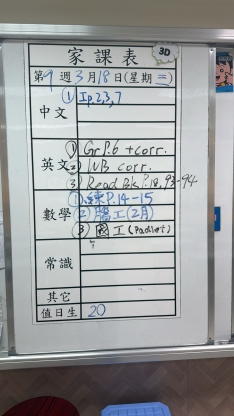 家課表
3D
第9週3月18日(星期二)
中文
① Ip.2,3,7
英文
① Gr P.6 + corr.
② WB corr.
③ Read Bk P.18, 93-94
數學
① 練P.14-15
② 騰工(2月)
③ 工(Padlet)
常識
其它
值日生 20